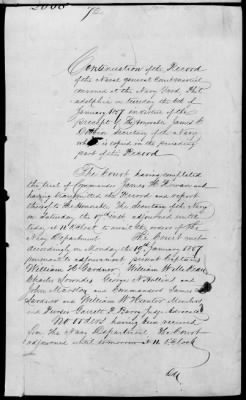 2068 72
Continuation of the Record
of the Naval general Courtmartial
convened at the Navy Yard Phil
adelphia on Tuesday the 6th of
January 1857 in virtue of the
precept of the Honorable James C.
Dobbin Secretary of the Navy
which is copied in the preceding
part of this Record.
The Court having completed
the trial of Commander James H. Rowan and
having transmitted the Record and report
thereof to the Honorable The Secretary of the Navy
on Saturday the 17th inst adjourned until
today at 11 o'Clock to await the orders of the
Navy Department. The Court met
accordingly on Monday the 19th January 1857
pursuant to adjournment present Captains
William H. Gardner, William
Charles Lowndes, George N. Hollins and
John Manning and Commanders James
Gardner and William W. Hunter Members
and Purser Garrett R. Barry Judge Advocate
No orders having been received
from the Navy Department The Court
adjourned until tomorrow at 11 o'Clock